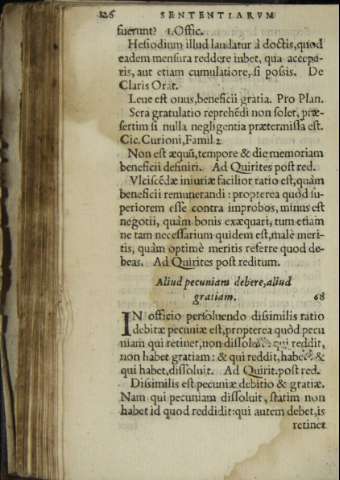 126 SENTENTIARVM
fuerunt? 1.Offic.
Hesiodium illud laudatur à doctis,quod
eadem mensura reddere iubet, qua accepe-
ris, aut etiam cumulatiore, si possis. De
Claris Orat.
Leue est onus,beneficii gratia. Pro Plan.
Sera gratulatio reprehēdi non solet, præ-
sertim si nulla negligentia prætermissa est.
Cic.Curioni,Famil.2.
Non est æquū,tempore & die memoriam
beneficii definiri. Ad Quirites post red.
Vlciscēdæ iniuriæ facilior ratio est,quàm
beneficii remunerandi : propterea quòd su-
periorem esse contra improbos, minus est
negotii, quàm bonis exæquari, tum etiam
ne tam necessarium quidem est,malè meri-
tis, quàm optimè meritis referre quod de-
beas. Ad Quirites post reditum.
Aliud pecuniam debere,aliud
gratiam. 68
IN officio persoluendo dissimilis ratio
debitæ pecuniæ est,propterea quòd pecu
niam qui retinet,non dissoluit: qui reddit,
non habet gratiam: & qui reddit,habet: &
qui habet,dissoluit. Ad Quirit.post red.
Dissimilis est pecuniæ debitio & gratiæ.
Nam qui pecuniam dissoluit, statim non
habet id quod reddidit:qui autem debet,is
retinet